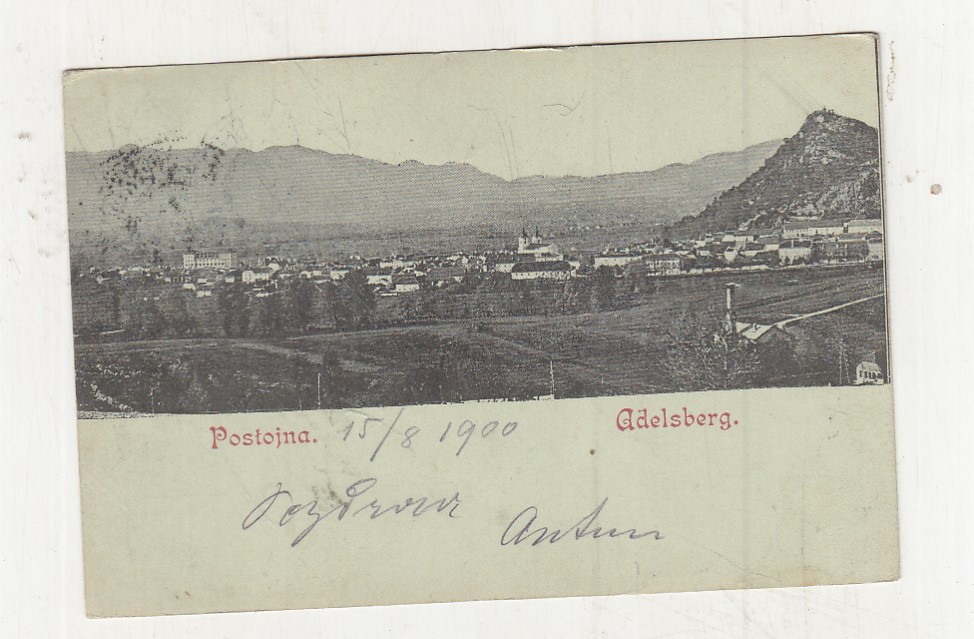 Postojna. 15/8 1900 Adelsberg.
Pozdrav Antun